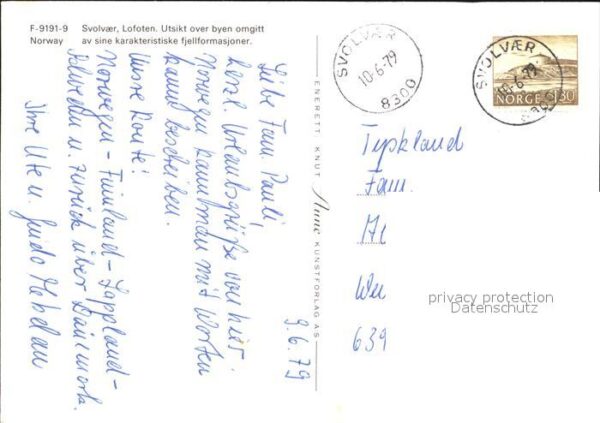 F-9191-9 Svolvær, Lofoten. Utsikt over byen omgitt
Norway av sine karakteristiske fjellformasjoner.
9.6.79
Liebe Fam. Pauli,
herzl. Urlaubsgrüße von hier.
Norwegen kann man mit Worten
kaum beschreiben.
Unsre Route:
Norwegen - Finnland - Lappland -
Schweden u. zurück über Dänemark.
Ihre Ute u. Guido
ENERETT: KNUT Aune KUNSTFORLAG A.S
SVOLVÆR
10-6-79
8300
SVOLVÆR
10-6-79
NORGE 130
Tyskland
Fam.
639
privacy protection
Datenschutz